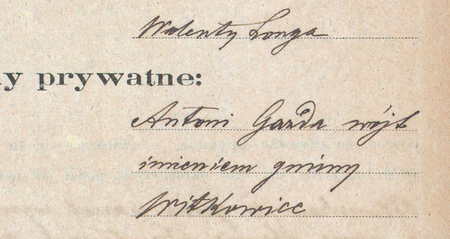 Walenty Longa
y prywatne:
Antoni Gazda wójt
imieniem gminy
Witkowice